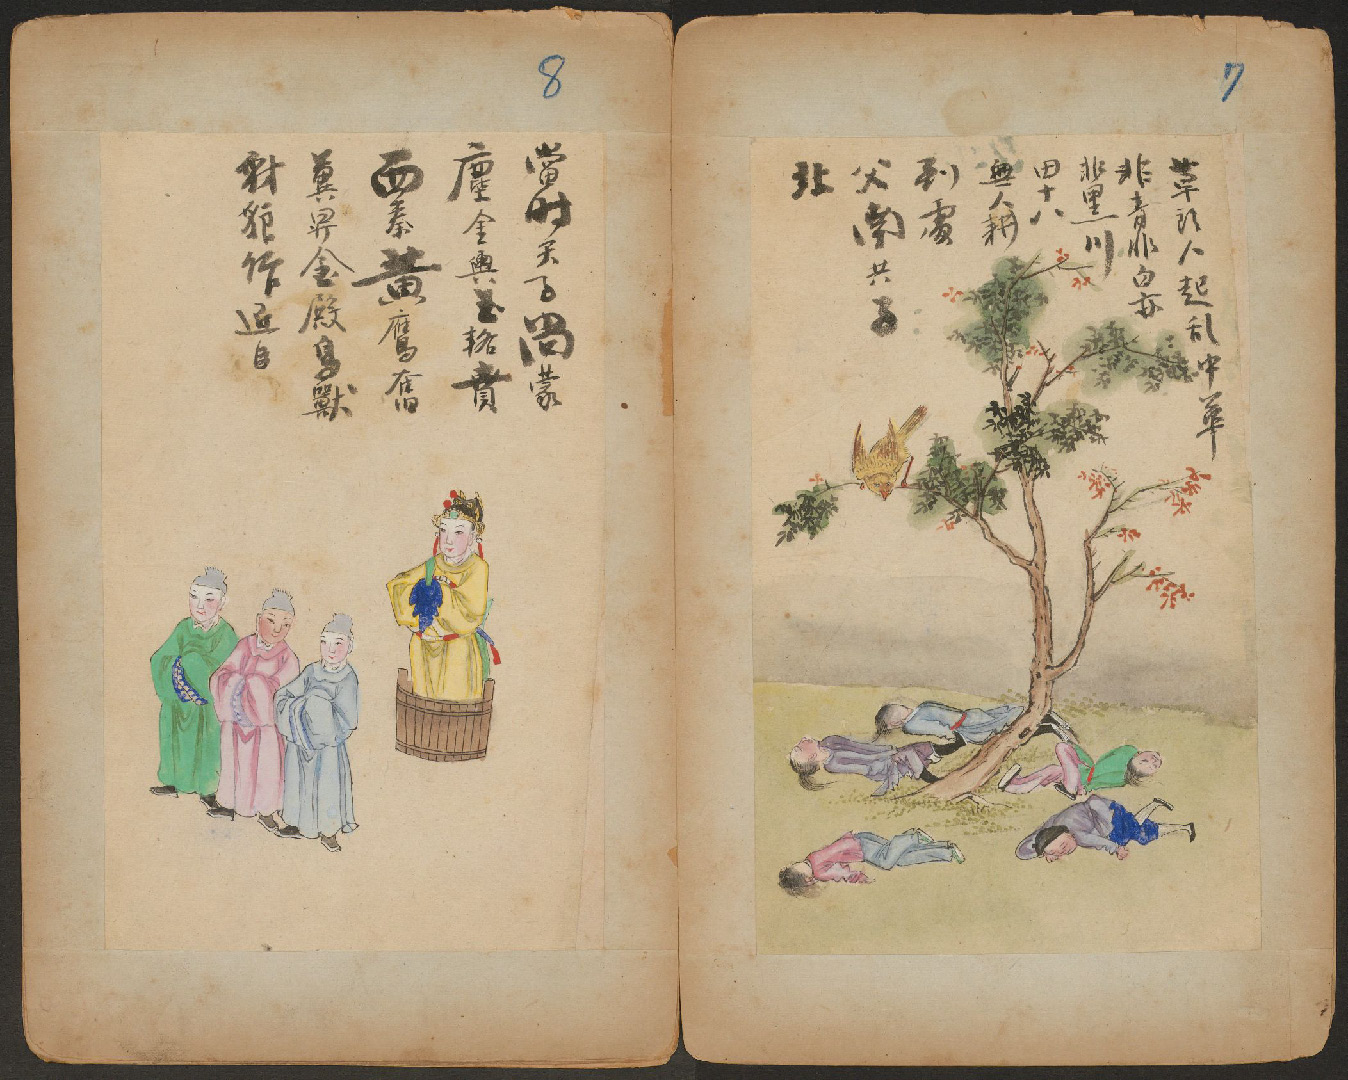 7
草頭人起乱中華
非青非白亦
非黑川
田十八
無人耕
到處
父南共子
北
8
當时天子尚蒙
塵金輿玉輅賁
西秦黃鷹奮
翼昇金殿鳥獸
豺作近臣